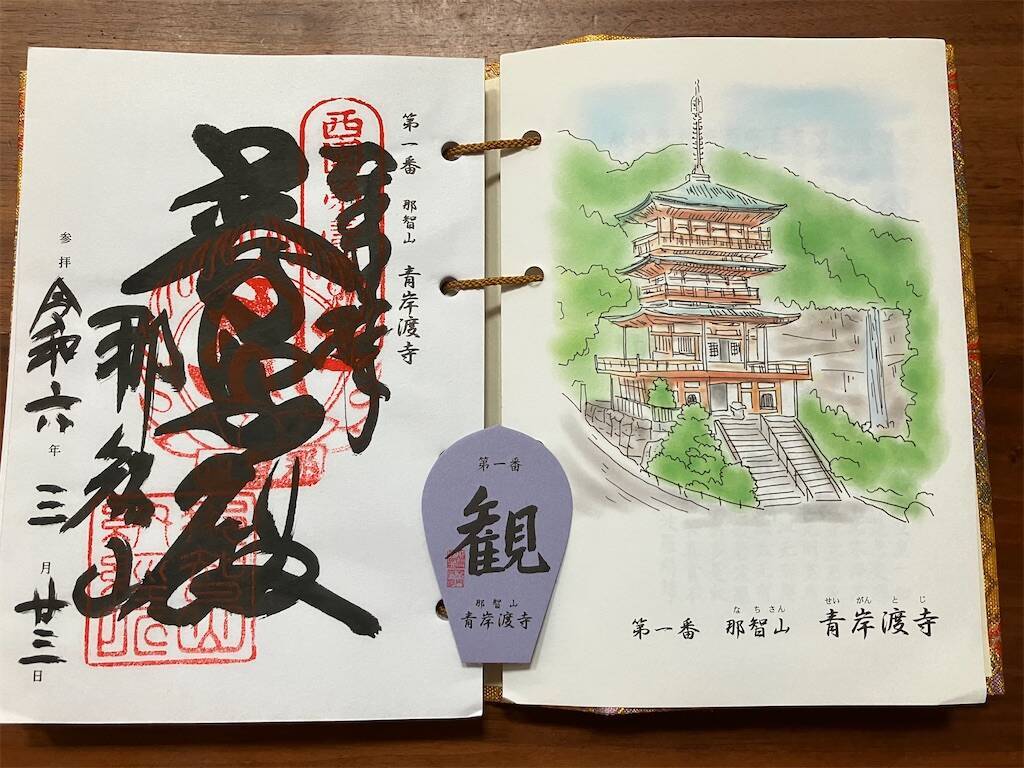 第一番 那智山 青岸渡寺
奉拝
普照殿
那智山
参拝 令和六年三月廿三日
第一番
観
那智山
青岸渡寺
なちさん せいがんとじ
第一番 那智山 青岸渡寺